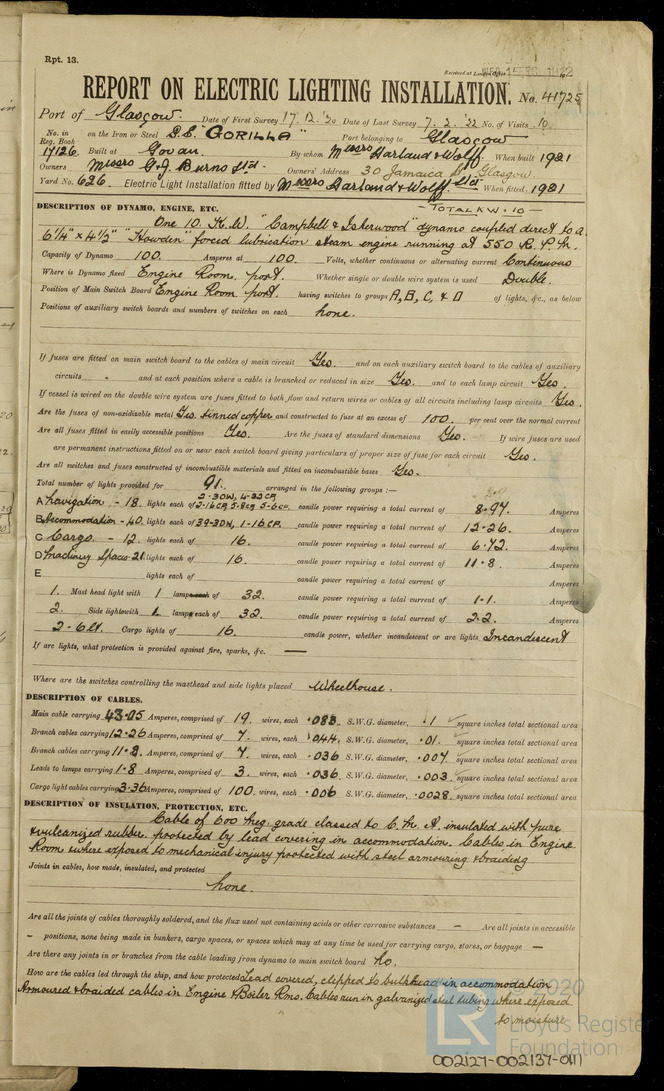 Rpt. 13.
Received at London Office WED. 15 FEB 1922
REPORT ON ELECTRIC LIGHTING INSTALLATION. No. 41725
Port of Glasgow. Date of First Survey 17.12.20 Date of Last Survey 7.2.22 No. of Visits 10
No. in Reg. Book on the Iron or Steel S.S. "GORILLA" Port belonging to Glasgow
17126 Built at Govan. By whom Messrs Harland & Wolff. When built 1921
Owners Messrs G & J Burns Ltd. Owners' Address 30 Jamaica St Glasgow.
Yard No. 626. Electric Light Installation fitted by Messrs Harland & Wolff Ltd When fitted 1921
DESCRIPTION OF DYNAMO, ENGINE, ETC. — TOTAL KW. 10 —
One 10 K.W. "Campbell & Isherwood" dynamo coupled direct to a
6¼" x 4½" "Howden" forced lubrication steam engine running at 550 R.P.M.
Capacity of Dynamo 100. Amperes at 100. Volts, whether continuous or alternating current Continuous
Where is Dynamo fixed Engine Room port. Whether single or double wire system is used Double.
Position of Main Switch Board Engine Room port. having switches to groups A, B, C, & D of lights, &c., as below
Positions of auxiliary switch boards and numbers of switches on each None.
If fuses are fitted on main switch board to the cables of main circuit Yes. and on each auxiliary switch board to the cables of auxiliary
circuits - and at each position where a cable is branched or reduced in size Yes. and to each lamp circuit Yes.
If vessel is wired on the double wire system are fuses fitted to both flow and return wires or cables of all circuits including lamp circuits Yes.
Are the fuses of non-oxidizable metal Yes. tinned copper and constructed to fuse at an excess of 100. per cent over the normal current
Are all fuses fitted in easily accessible positions Yes. Are the fuses of standard dimensions Yes. If wire fuses are used
are permanent instructions fitted on or near each switch board giving particulars of proper size of fuse for each circuit Yes.
Are all switches and fuses constructed of incombustible materials and fitted on incombustible bases Yes.
Total number of lights provided for 91. arranged in the following groups :—
2-30W, 4-32CP,
A Navigation - 18. lights each of 2-16CP, 5-8CP, 5-6CP. candle power requiring a total current of 8.97. Amperes
B Accommodation - 40. lights each of 39-30W, 1-16CP. candle power requiring a total current of 12.26. Amperes
C Cargo. - 12. lights each of 16. candle power requiring a total current of 6.72. Amperes
D Machinery Spaces 21 lights each of 16. candle power requiring a total current of 11.8. Amperes
E lights each of candle power requiring a total current of Amperes
1. Mast head light with 1 lamps each of 32. candle power requiring a total current of 1.1. Amperes
2. Side lights with 1 lamps each of 32. candle power requiring a total current of 2.2. Amperes
2 - 6 lt. Cargo lights of 16. candle power, whether incandescent or arc lights Incandescent
If arc lights, what protection is provided against fire, sparks, &c. —
Where are the switches controlling the masthead and side lights placed Wheelhouse.
DESCRIPTION OF CABLES.
Main cable carrying 43.05 Amperes, comprised of 19. wires, each .083. S.W.G. diameter, .1 square inches total sectional area
Branch cables carrying 12.26 Amperes, comprised of 7. wires, each .044. S.W.G. diameter, .01. square inches total sectional area
Branch cables carrying 11.8. Amperes, comprised of 7. wires, each .036 S.W.G. diameter, .007. square inches total sectional area
Leads to lamps carrying 1.8 Amperes, comprised of 3. wires, each .036. S.W.G. diameter, .003. square inches total sectional area
Cargo light cables carrying 3.36 Amperes, comprised of 100. wires, each .006 S.W.G. diameter, .0028. square inches total sectional area
DESCRIPTION OF INSULATION, PROTECTION, ETC.
Cable of 600 meg. grade classed to C.M.A. insulated with pure
& vulcanized rubber. protected by lead covering in accommodation. Cables in Engine
Room & where exposed to mechanical injury protected with steel armouring & braiding
Joints in cables, how made, insulated, and protected
None.
Are all the joints of cables thoroughly soldered, and the flux used not containing acids or other corrosive substances — Are all joints in accessible
- positions, none being made in bunkers, cargo spaces, or spaces which may at any time be used for carrying cargo, stores, or baggage —
Are there any joints in or branches from the cable leading from dynamo to main switch board No.
How are the cables led through the ship, and how protected Lead covered, clipped to bulkhead in accommodation
Armoured & braided cables in Engine & Boiler Rms. Cables run in galvanized steel tubing where exposed
to moisture
© 2020
LR Lloyd's Register
Foundation
002127-002137-0111